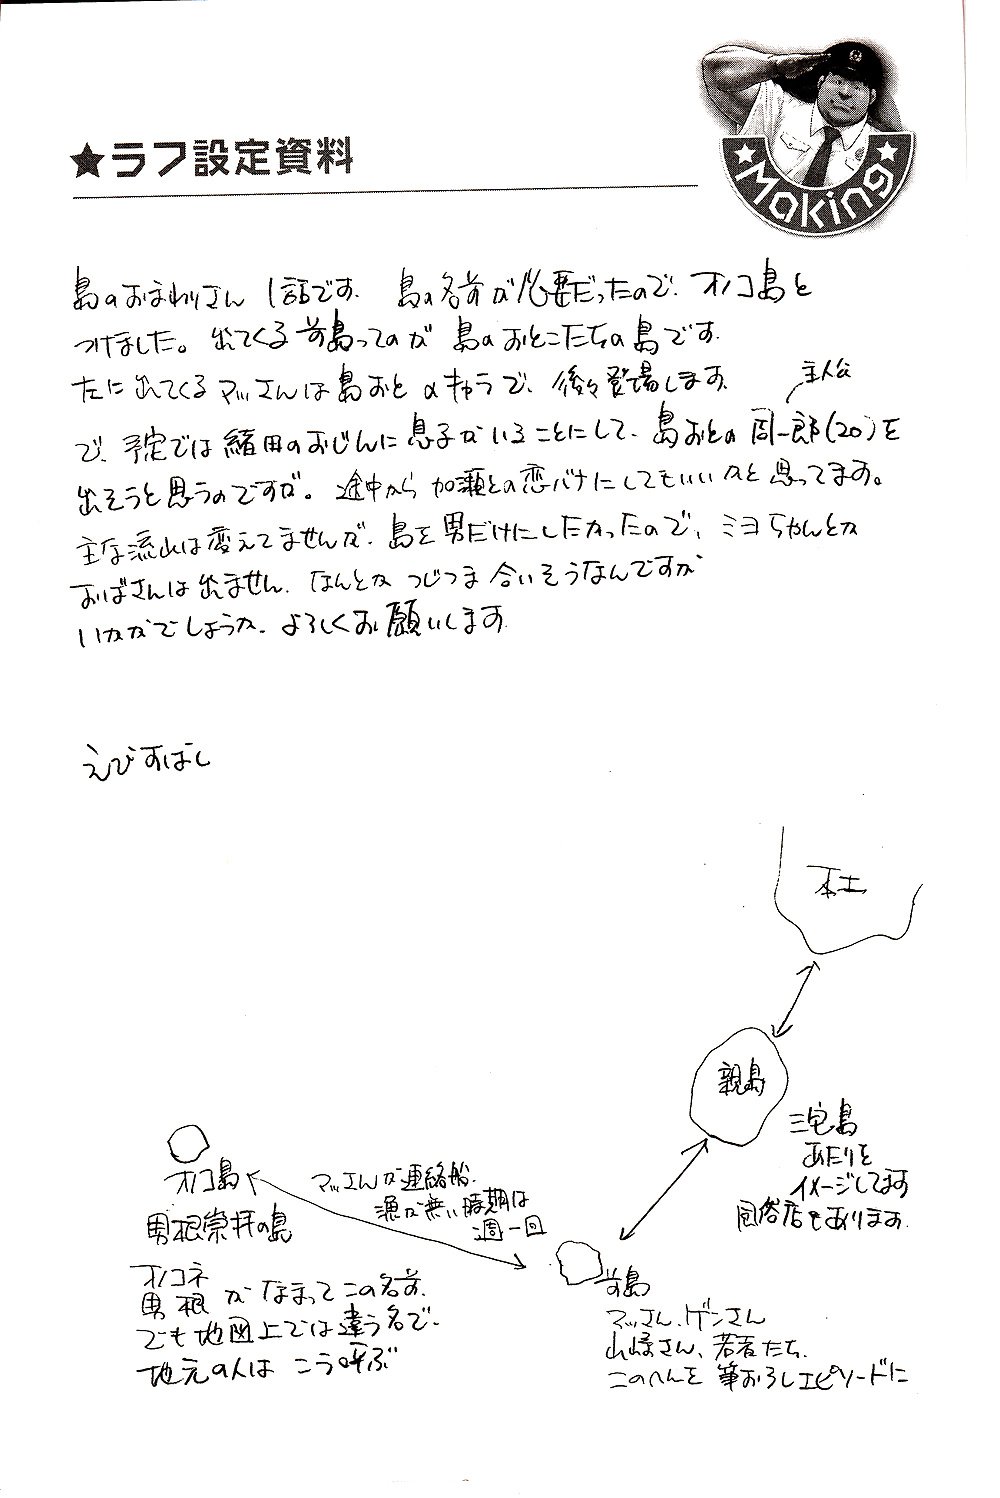 ★ラフ設定資料
★Making★
島のおまわりさん 1話です. 島の名前が必要だったので、オノコ島と
つけました。出てくる前島ってのが 島のおとこたちの島です.
たに出てくるマッさんは島おとのキャラで、後々登場します.
主人公
で、予定では緒田のおじんに息子がいることにして、島おとの周一郎(20)を
出そうと思うのですが。途中から加瀬との恋バナにしてもいいかと思ってます。
主な流れは変えてませんが、島を男だけにしたかったので、ミヨちゃんとか
おばさんは出ません. なんとか つじつま合いそうなんですが
いかがでしょうか. よろしくお願いします.
えびすぼし
本土
親島
三宅島
あたりを
イメージしてます
風俗店もあります.
オノコ島
マッさんが連絡船.
漁が無い時期は
週一回
男根崇拝の島
オノコネ
男根 がなまってこの名前.
でも地図上では違う名で.
地元の人は こう呼ぶ
前島
マッさん、ゲンさん
山崎さん、若者たち.
このへんを 筆おろしエピソードに